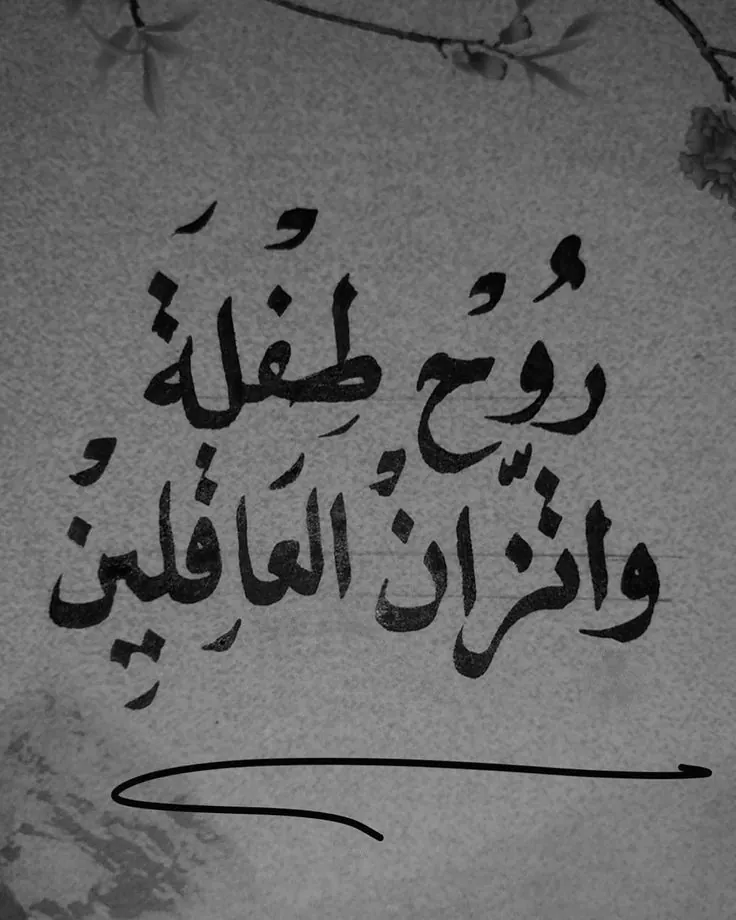 رُوْحْ طِفْلَةَ
واتّزانْ العَاقِلِينْ